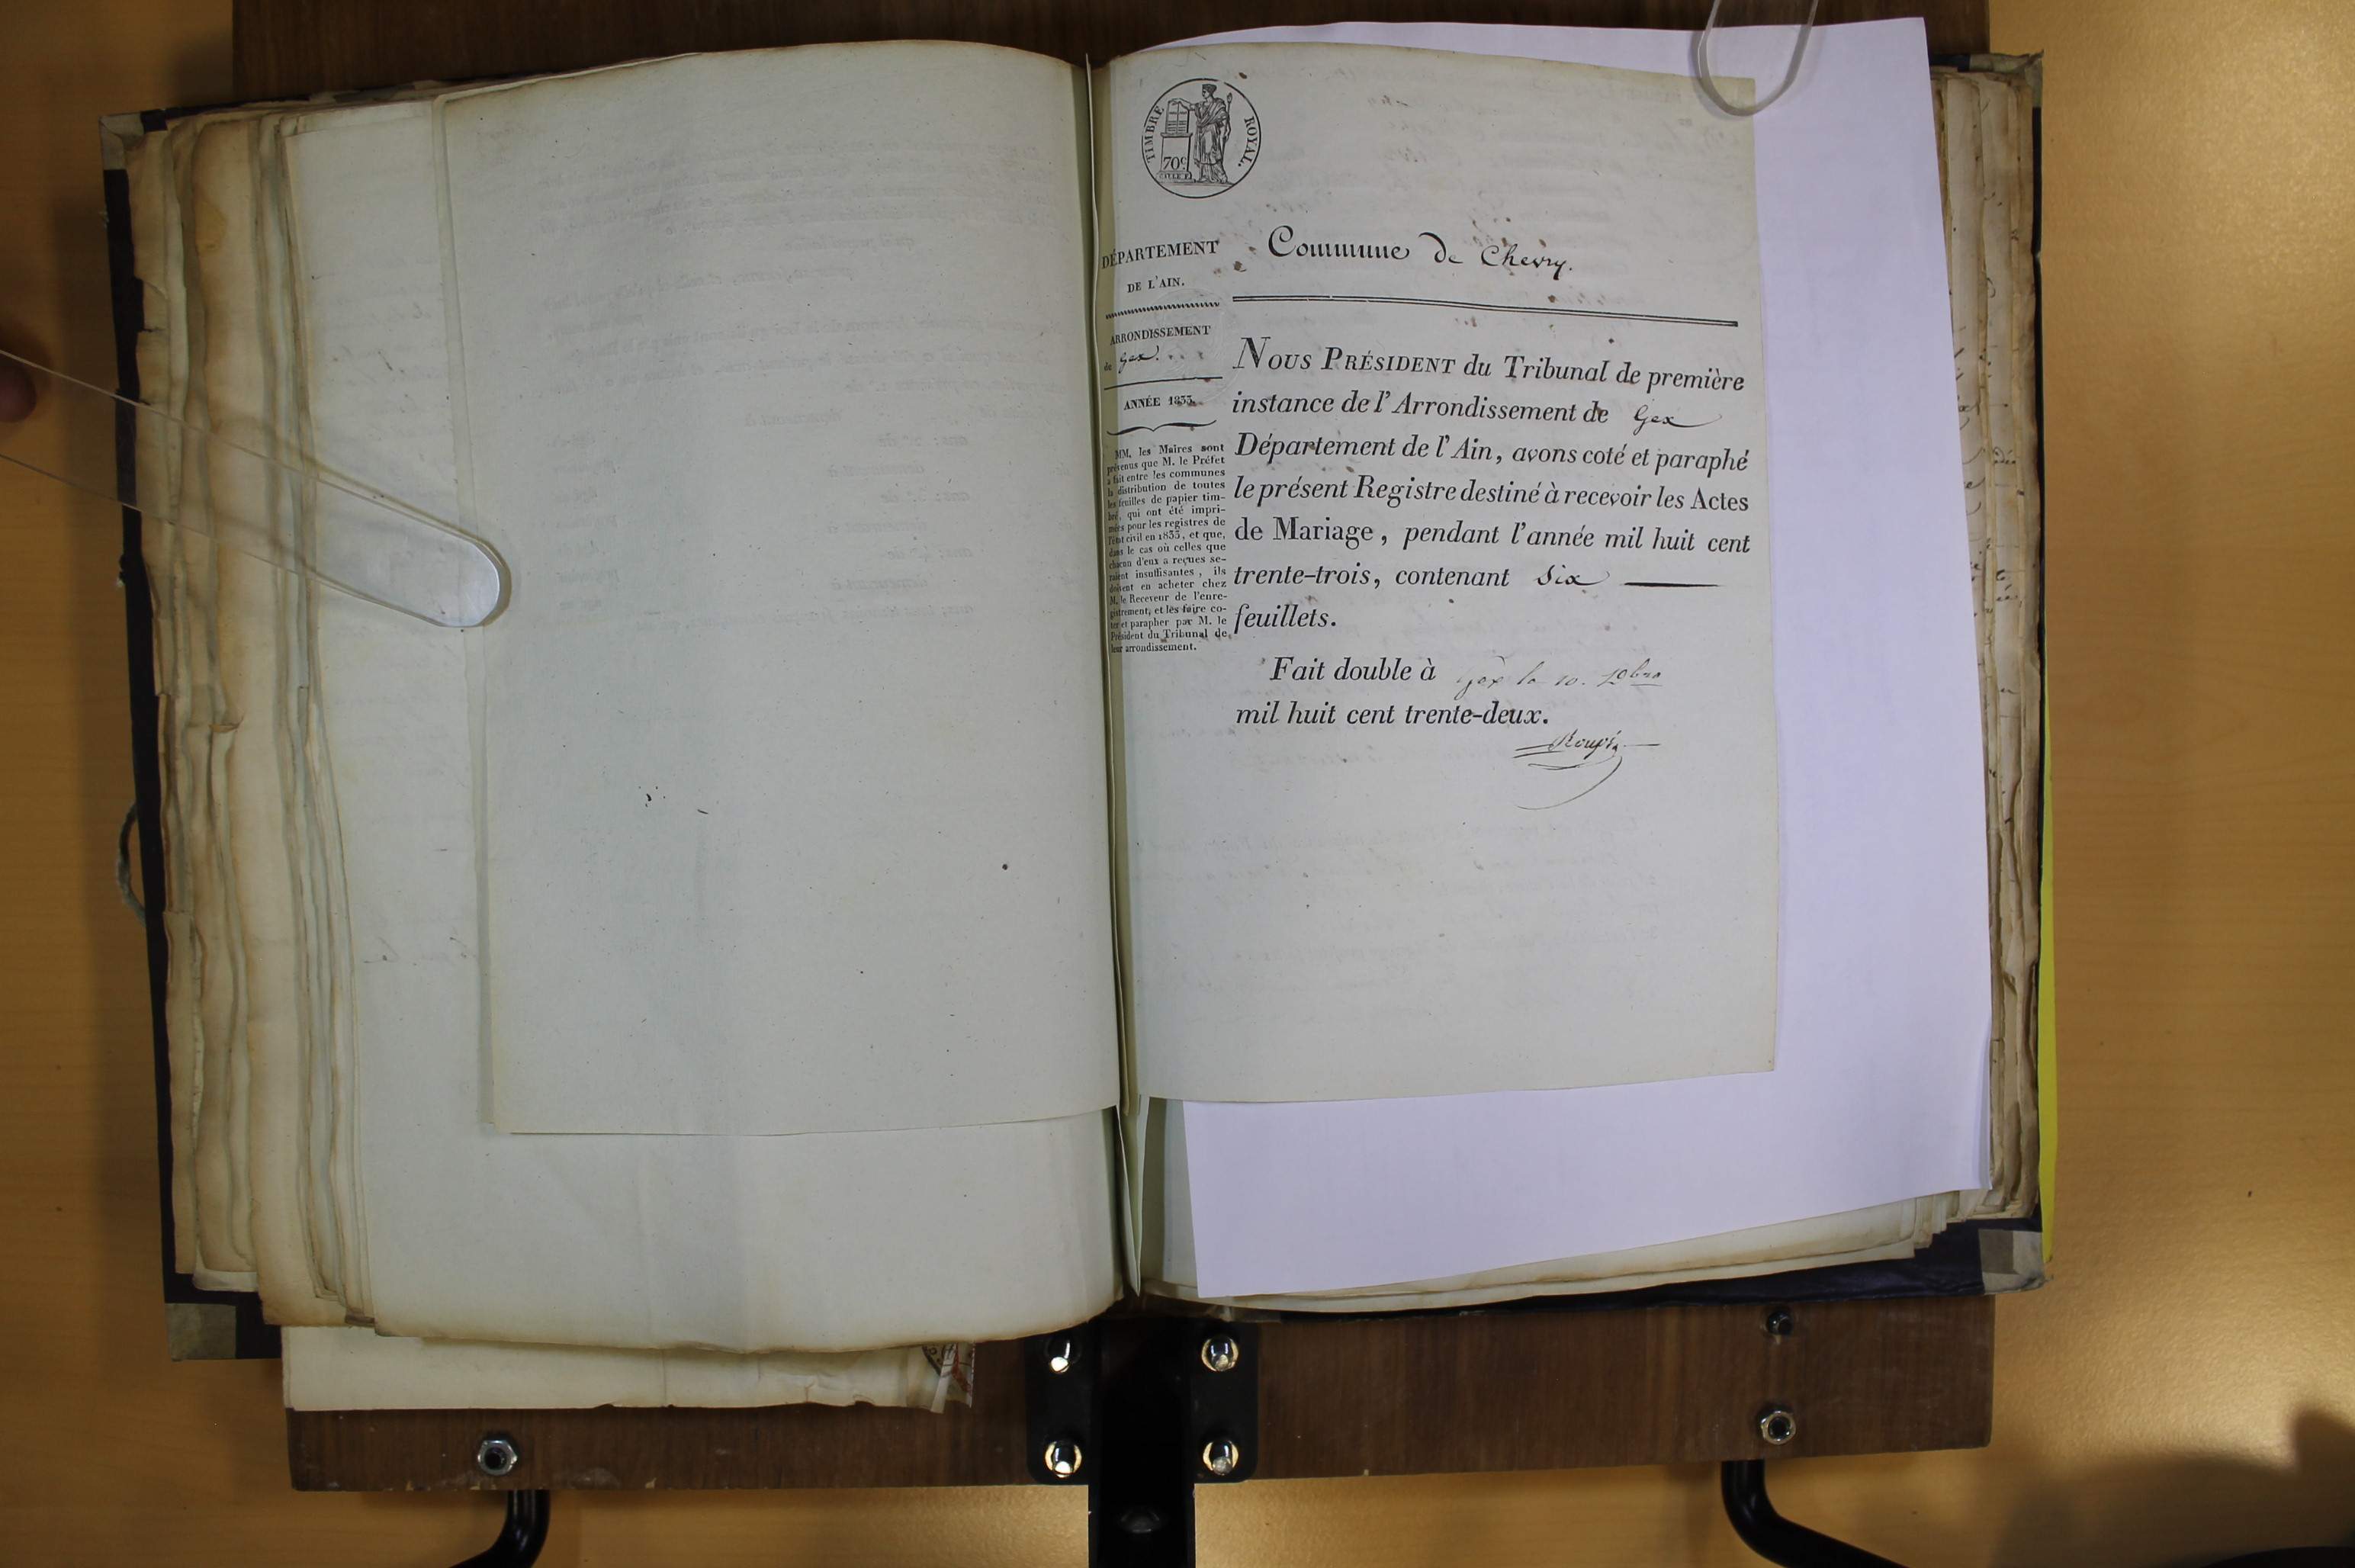 TIMBRE ROYAL.
70c
Commune de Chevry.
DÉPARTEMENT
DE L'AIN.
ARRONDISSEMENT
de Gex.
ANNÉE 1833.
MM. les Maires sont
prévenus que M. le Préfet
a fait entre les communes
la distribution de toutes
les feuilles de papier tim-
bré, qui ont été impri-
mées pour les registres de
l'état civil en 1833, et que,
dans le cas où celles que
chacun d'eux a reçues se-
raient insuffisantes, ils
doivent en acheter chez
M. le Receveur de l'enre-
gistrement, et les faire co-
ter et parapher par M. le
Président du Tribunal de
leur arrondissement.
NOUS PRÉSIDENT du Tribunal de première
instance de l'Arrondissement de Gex
Département de l'Ain, avons coté et paraphé
le présent Registre destiné à recevoir les Actes
de Mariage, pendant l'année mil huit cent
trente-trois, contenant Six
feuillets.
Fait double à Gex le 10. Xbre
mil huit cent trente-deux.